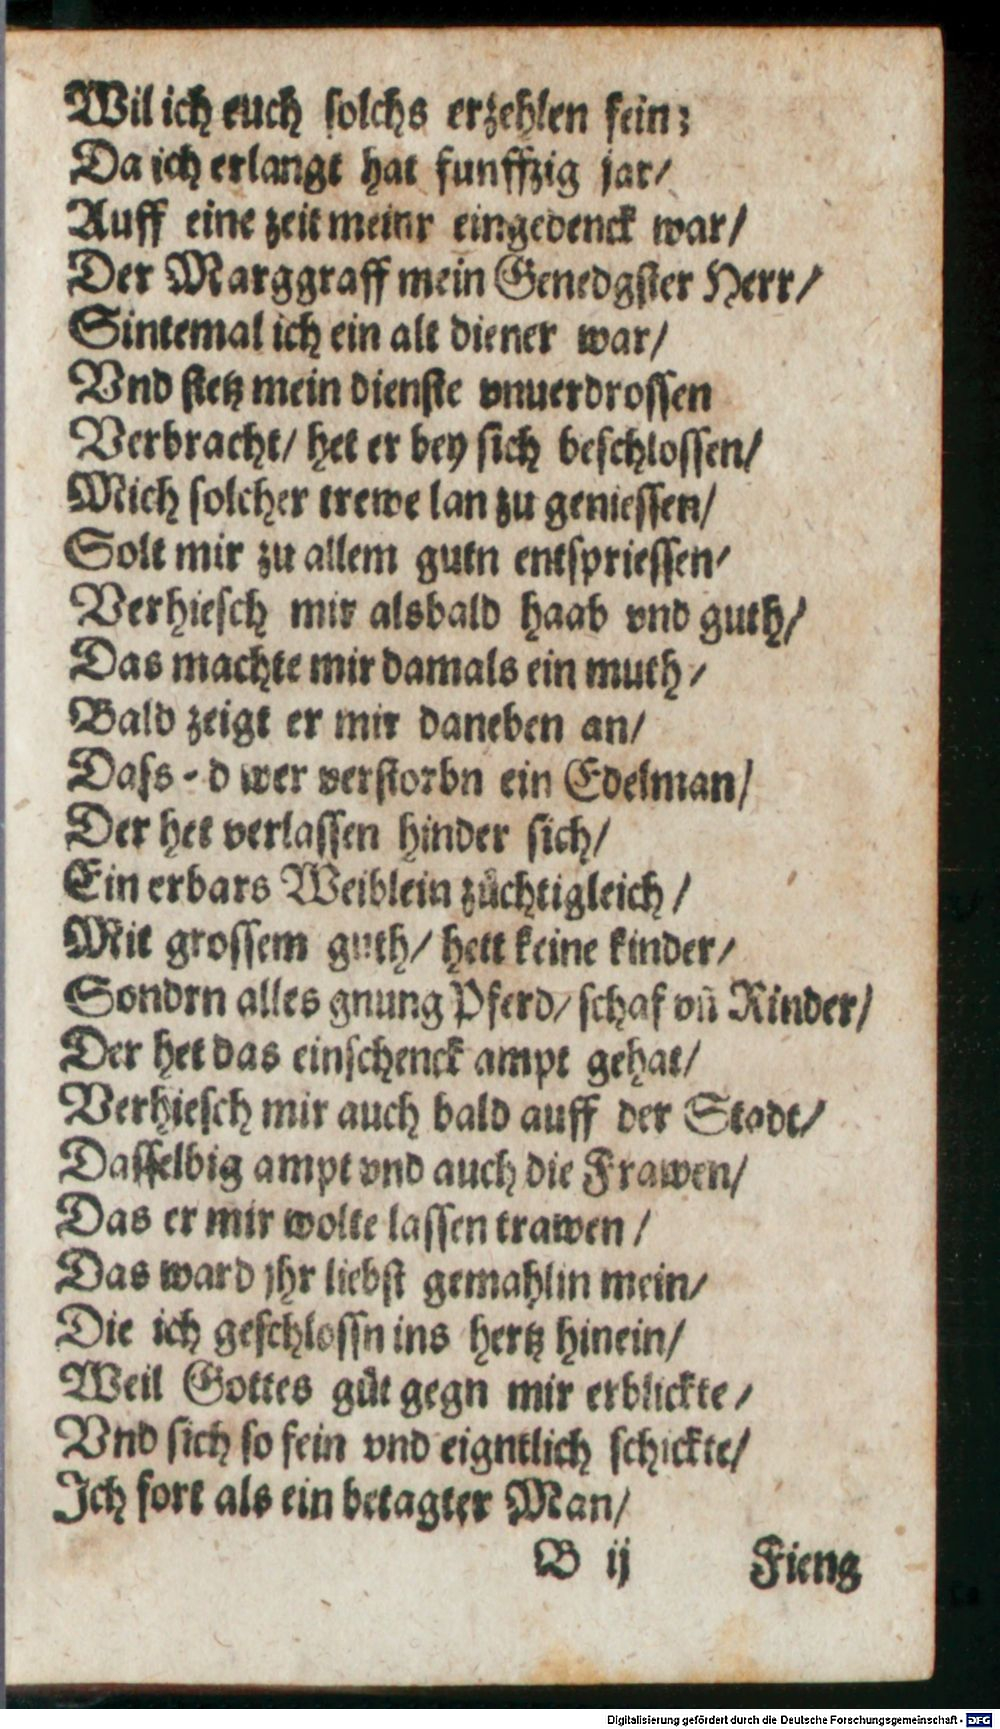 Wil ich euch solchs erzehlen fein:
Da ich erlangt hat funffzig jar/
Auff eine zeit meinr eingedenck war/
Der Marggraff mein Genedgster Herr/
Sintemal ich ein alt diener war/
Vnd stetz mein dienste vnuerdrossen
Verbracht/ het er bey sich beschlossen/
Mich solcher trewe lan zu geniessen/
Solt mir zu allem gutn entspriessen/
Verhiesch mir alsbald haab vnd guth/
Das machte mir damals ein muth/
Bald zeigt er mir daneben an/
Dass-d wer verstorbn ein Edelman/
Der het verlassen hinder sich/
Ein erbars Weiblein zůchtigleich/
Mit grossem guth/ hett keine kinder/
Sondrn alles gnung Pferd/ schaf vn̄ Rinder/
Der het das einschenck ampt gehat/
Verhiesch mir auch bald auff der Stadt/
Dasselbig ampt vnd auch die Frawen/
Das er mir wolte lassen trawen/
Das ward jhr liebst gemahlin mein/
Die ich geschlossn ins hertz hinein/
Weil Gottes gůt gegn mir erblickte/
Vnd sich so fein vnd eigntlich schickte/
Ich fort als ein betagter Man/
B ij Fieng
Digitalisierung gefördert durch die Deutsche Forschungsgemeinschaft - DFG